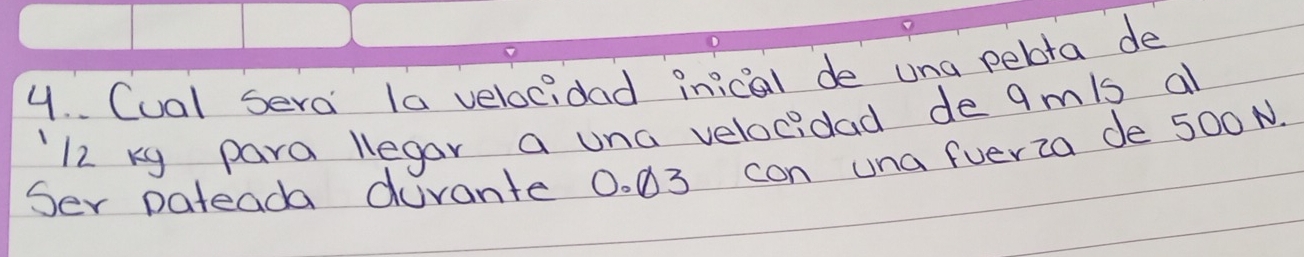 4.. Cual será la velocidad inicial de una pelota de
1/2 kg para llegar a una velocidad de 9m/s al
Ser pateada durante 0.03 con una fuerza de 500 N.